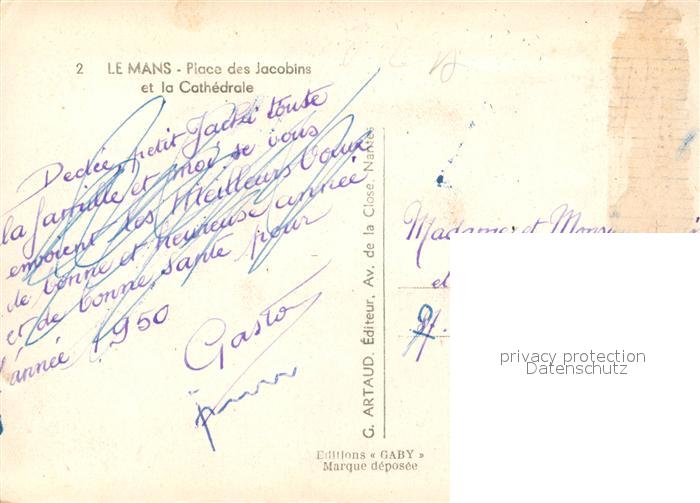 2 LE MANS - Place des Jacobins
et la Cathédrale
Dedée, petit Jacki toute
la famille et moi se vous
envoient les Meilleurs Voeux
de bonne et Heureuse année
et de bonne santé pour
l'année 1950
Gaston
G. ARTAUD, Éditeur, Av. de la Close, Nantes
Madame et
et
Editions « GABY »
Marque déposée
privacy protection
Datenschutz